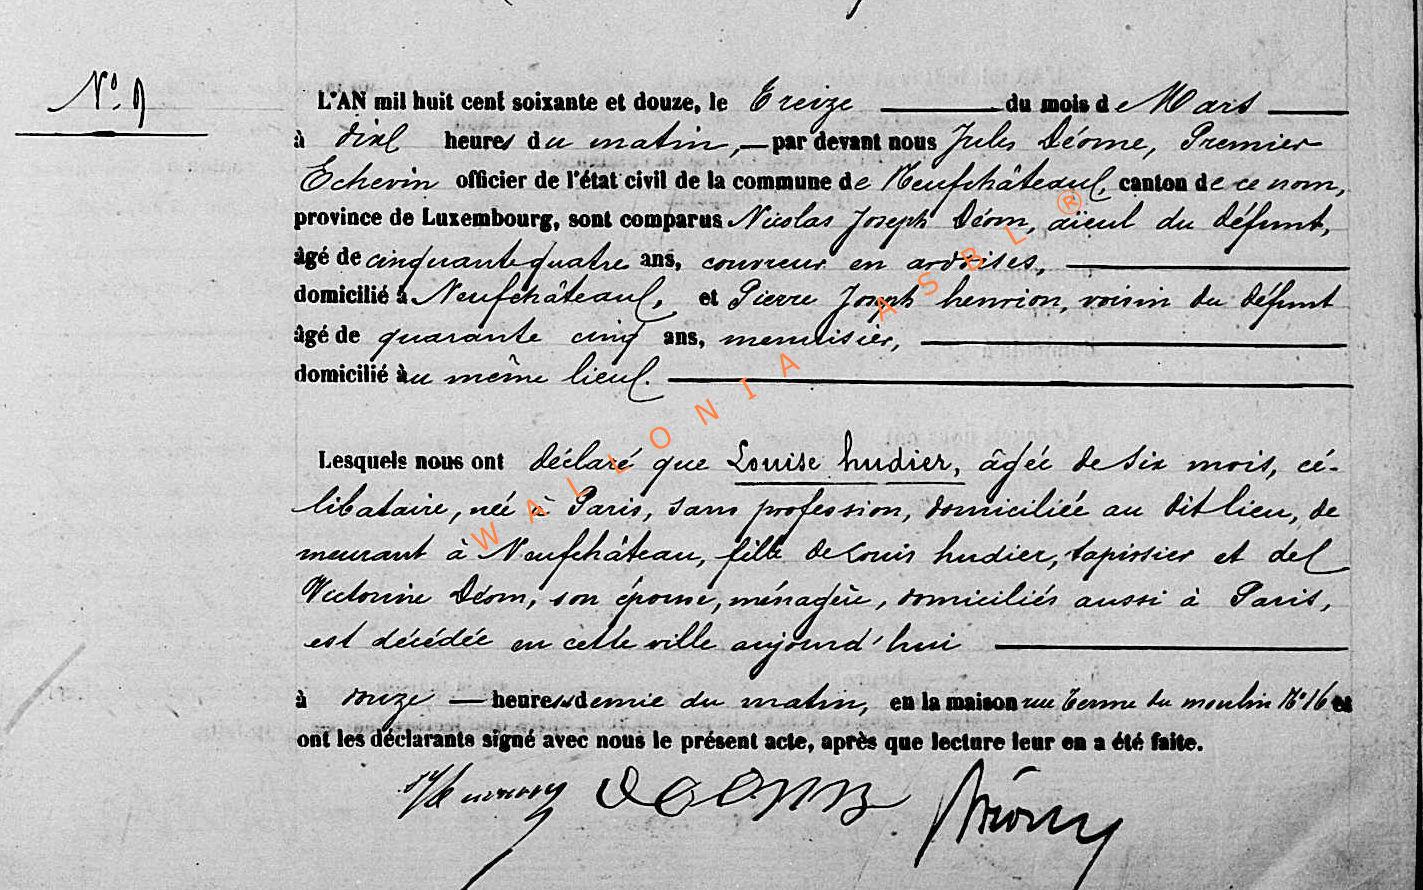 N° 9
L'AN mil huit cent soixante et douze, le Treize du mois de Mars
à dix heures du matin, par devant nous Jules Déome, Premier
Echevin officier de l'état civil de la commune de Neufchâteau, canton de ce nom,
province de Luxembourg, sont comparus Nicolas Joseph Déom, aïeul du défunt,
âgé de cinquante quatre ans, couvreur en ardoises,
domicilié à Neufchâteau, et Pierre Joseph henrion, voisin du défunt
âgé de quarante cinq ans, menuisier,
domicilié au même lieu.
Lesquels nous ont déclaré que Louise hudier, âgée de six mois, cé-
libataire, née à Paris, sans profession, domiciliée au dit lieu, de
meurant à Neufchâteau, fille de Louis hudier, tapissier et de
Victorine Déom, son épouse, ménagère, domiciliés aussi à Paris,
est décédée en cette ville aujourd'hui
à onze heures demie du matin, en la maison rue Terme du moulin N° 16 et
ont les déclarants signé avec nous le présent acte, après que lecture leur en a été faite.
WALLONIA ASBL ®